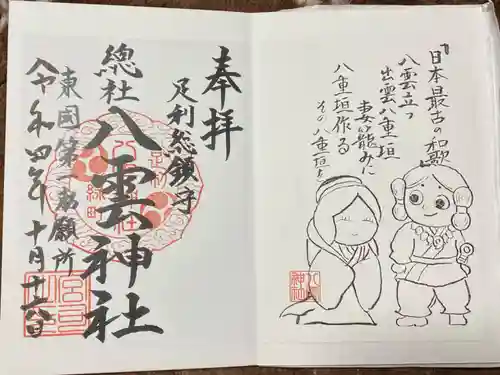 奉拝
足利総鎮守
總社八雲神社
東國第一祈願所
令和四年十月十六日
『日本最古の和歌
八雲立つ
出雲八重垣
妻籠みに
八重垣作る
その八重垣を